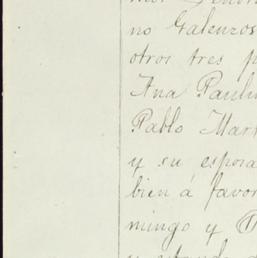 no Galenzos
otros tres p
Ana Paulin
Pablo Mar
y su esposa
bien á favor
mingo y